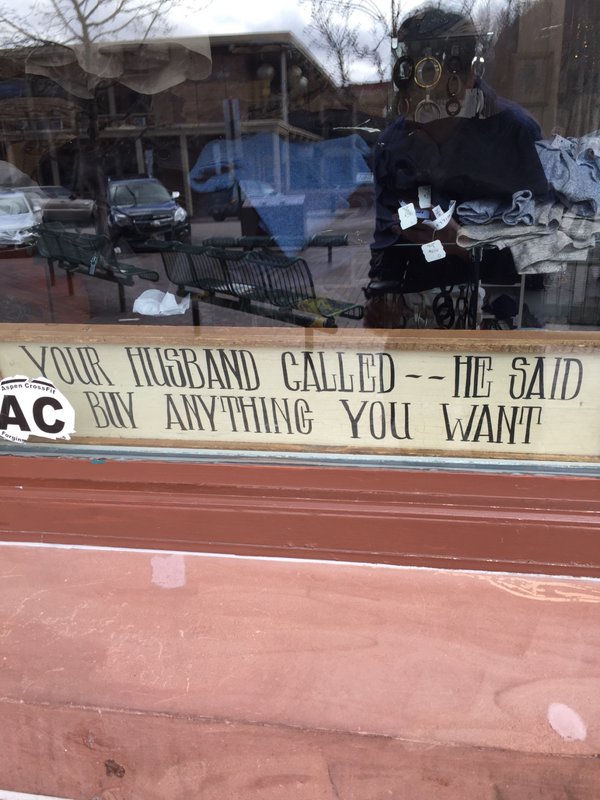 YOUR HUSBAND CALLED -- HE SAID
BUY ANYTHING YOU WANT
Aspen CrossFit
AC